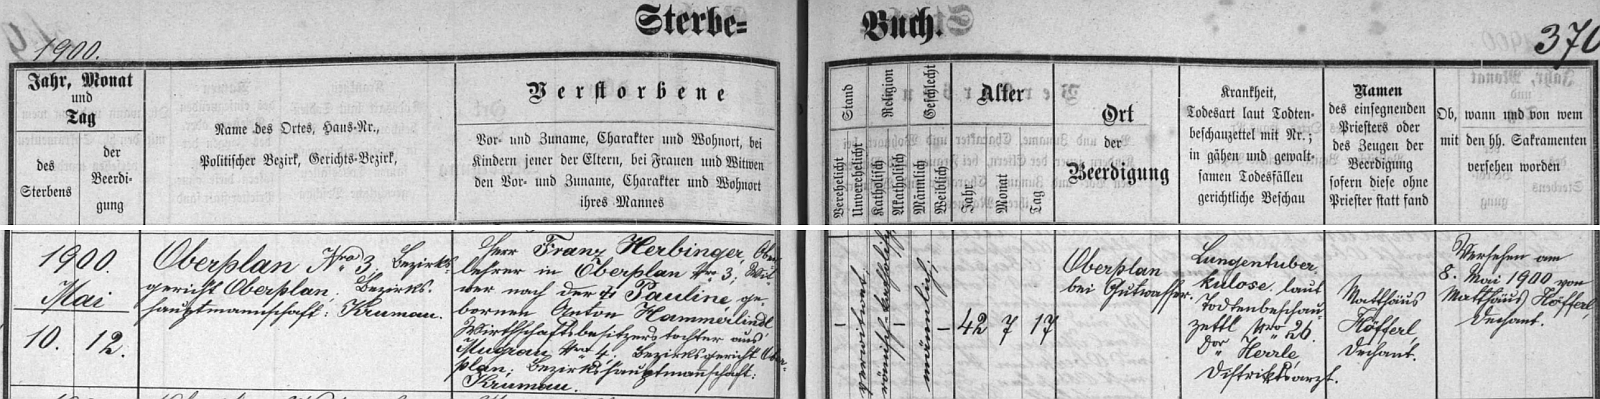 Sterbe= Buch.
1900. 370
Jahr, Monat
und
Tag
des
Sterbens
der
Beerdi-
gung
Name des Ortes, Haus-Nr.,
Politischer Bezirk, Gerichts-Bezirk,
Verstorbene
Vor- und Zuname, Charakter und Wohnort, bei
Kindern jener der Eltern, bei Frauen und Witwen
den Vor- und Zuname, Charakter und Wohnort
ihres Mannes
Stand
Verehelicht
Unverehelicht
Religion
Katholisch
Akatholisch
Geschlecht
Männlich
Weiblich
Alter
Jahr
Monat
Tag
Ort
der
Beerdigung
Krankheit,
Todesart laut Todten-
beschauzettel mit Nr.;
in gähen und gewalt-
samen Todesfällen
gerichtliche Beschau
Namen
des einsegnenden
Priesters oder
des Zeugen der
Beerdigung
sofern diese ohne
Priester statt fand
Ob, wann und von wem
mit den hh. Sakramenten
versehen worden
1900.
Mai
10. 12.
Oberplan Nro 3, Bezirks-
gericht Oberplan, Bezirks-
hauptmannschaft: Krumau.
Herr Franz Herbinger, Ober-
lehrer in Oberplan Nro 3, Wit-
wer nach der † Pauline ge-
bornen Anton Hammerlindl
Wirthschaftsbesitzerstochter aus
Mugrau Nro 4. Bezirksgericht Ober-
plan; Bezirkshauptmannschaft:
Krumau.
verwitwet
römisch-katholisch
männlich.
42 7 17
Oberplan
bei Gutwasser.
Lungentuber-
kulose laut
Todtenbeschau-
zettl Nro 26.
Dor Herrle,
Distriktsarzt.
Matthäus
Höfferl,
Dechant.
Versehen am
8. Mai 1900 von
Matthäus Höfferl,
Dechant.